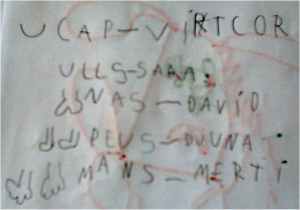 CAP-VIRTCOR
ULLS-SARA.
NAS-DAVID
PEUS-DUUNA
MANS-MERTI